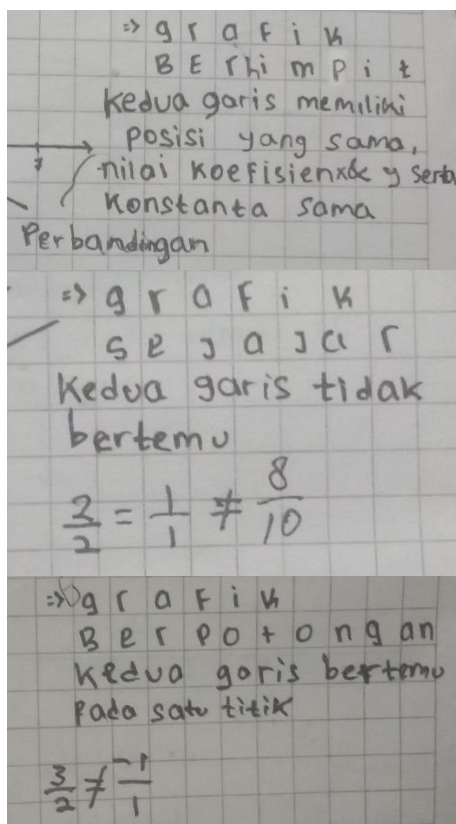 => grafik
BErhimpit
kedua garis memiliki
posisi yang sama,
nilai koefisien x & y serta
konstanta sama
Perbandingan
=> grafik
sejajar
kedua garis tidak
bertemu
2/2 = 1/1 ≠ 8/10
=> grafik
Berpotongan
kedua garis bertemu
pada satu titik
3/2 ≠ -1/1